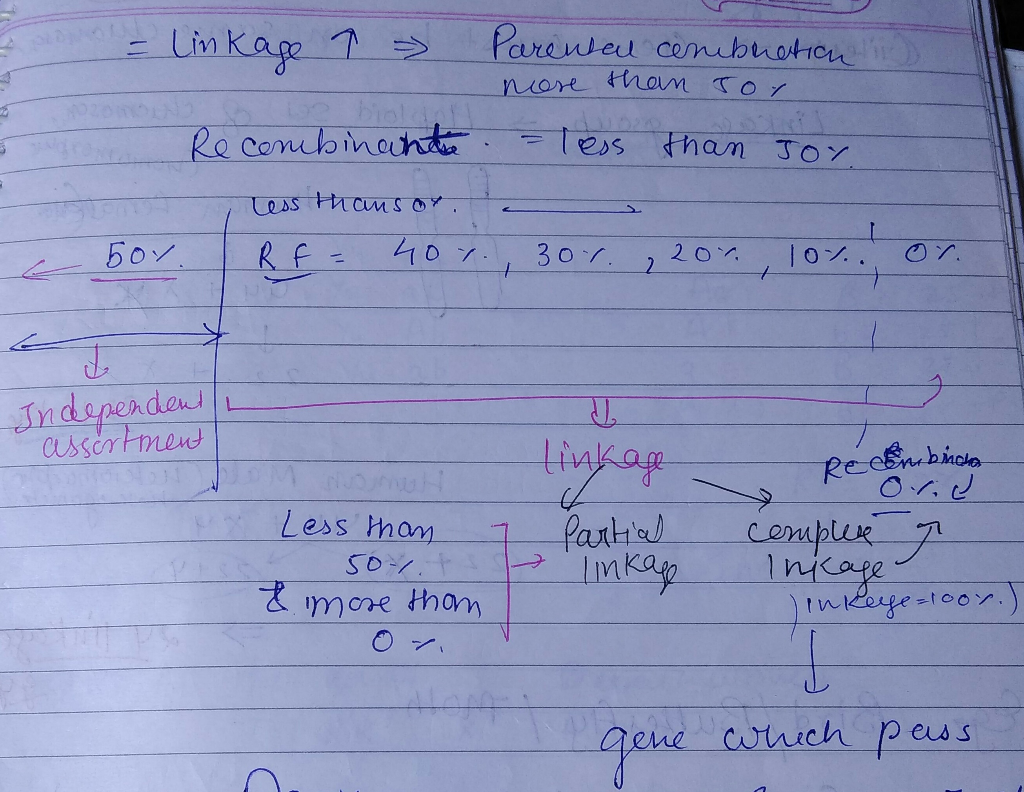 = Linkage ↑ ⇒ Parental combination
more than 50%
Recombinants = less than 50%
Less than 50%. ⟷
50% RF = 40%, 30%, 20%, 10%, 0%.
Independent
assortment
linkage
Recombinan
0%
Less than
50%
& more than
0%.
Partial
linkage
complete
linkage
(linkage=100%.)
gene which pass